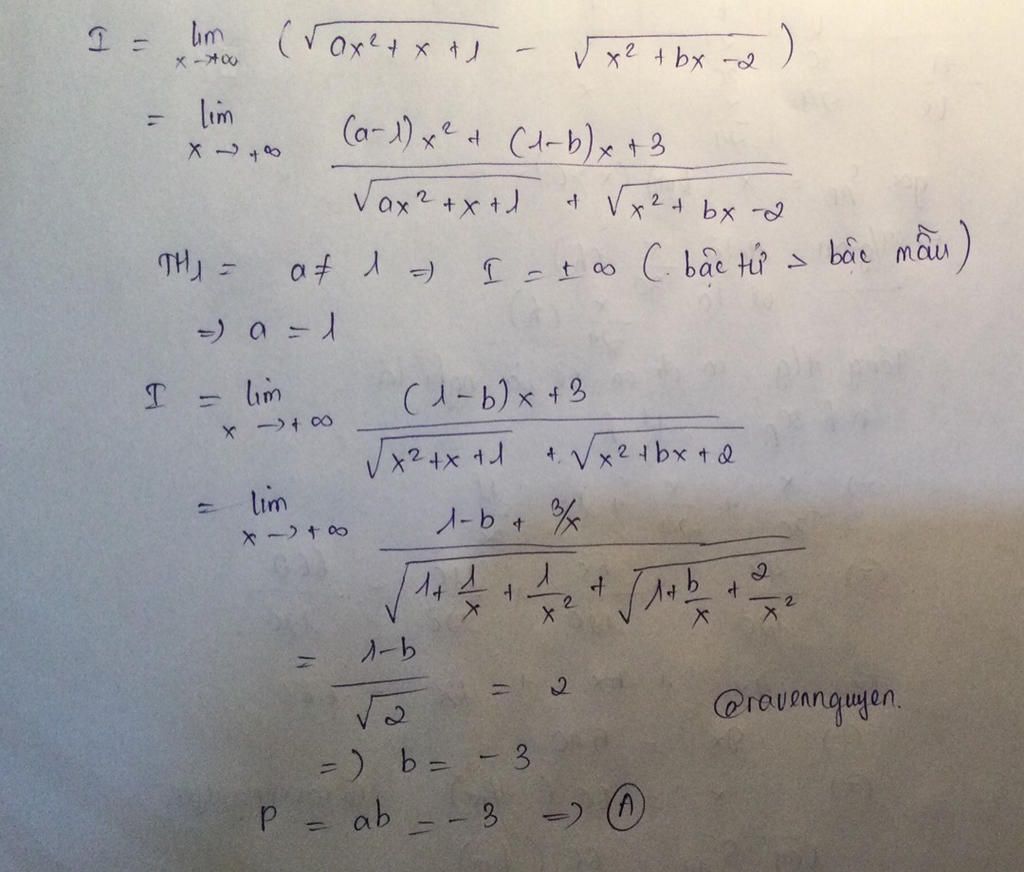 I = lim x→+∞ (√(ax² + x + 1) − √(x² + bx − 2))
= lim x→+∞ ((a−1)x² + (1−b)x + 3) / (√(ax² + x + 1) + √(x² + bx − 2))
TH1 = a ≠ 1 ⇒ I = ± ∞ (bậc tử > bậc mẫu)
⇒ a = 1
I = lim x→+∞ ((1−b)x + 3) / (√(x² + x + 1) + √(x² + bx + 2))
= lim x→+∞ (1−b + 3/x) / (√(1 + 1/x + 1/x²) + √(1 + b/x + 2/x²))
= (1−b) / √2 = 2
@ravennguyen.
⇒ b = −3
P = ab = −3 ⇒ A